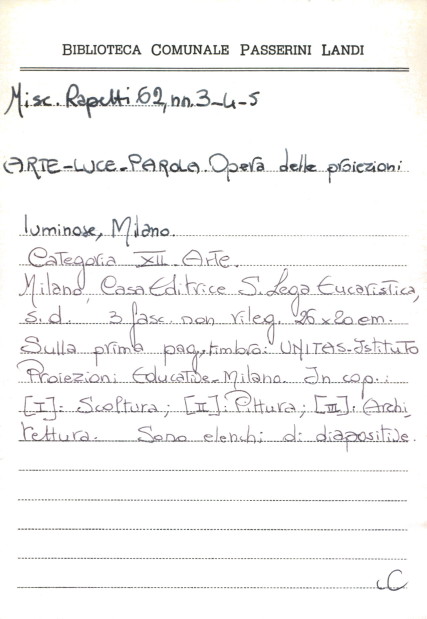 BIBLIOTECA COMUNALE PASSERINI LANDI
Misc. Rapetti 62, nn. 3-4-5
ARTE-LUCE-PAROLA. Opera delle proiezioni
luminose, Milano.
Categoria XII. Arte.
Milano, Casa Editrice S. Lega Eucaristica,
s.d. 3 fasc. non rileg. 26x20 cm.
Sulla prima pag., timbro: UNITAS-Istituto
Proiezioni Educative-Milano. In cop.:
[I]: Scoltura; [II]: Pittura; [III]: Archi
tettura. Sono elenchi di diapositive.
C